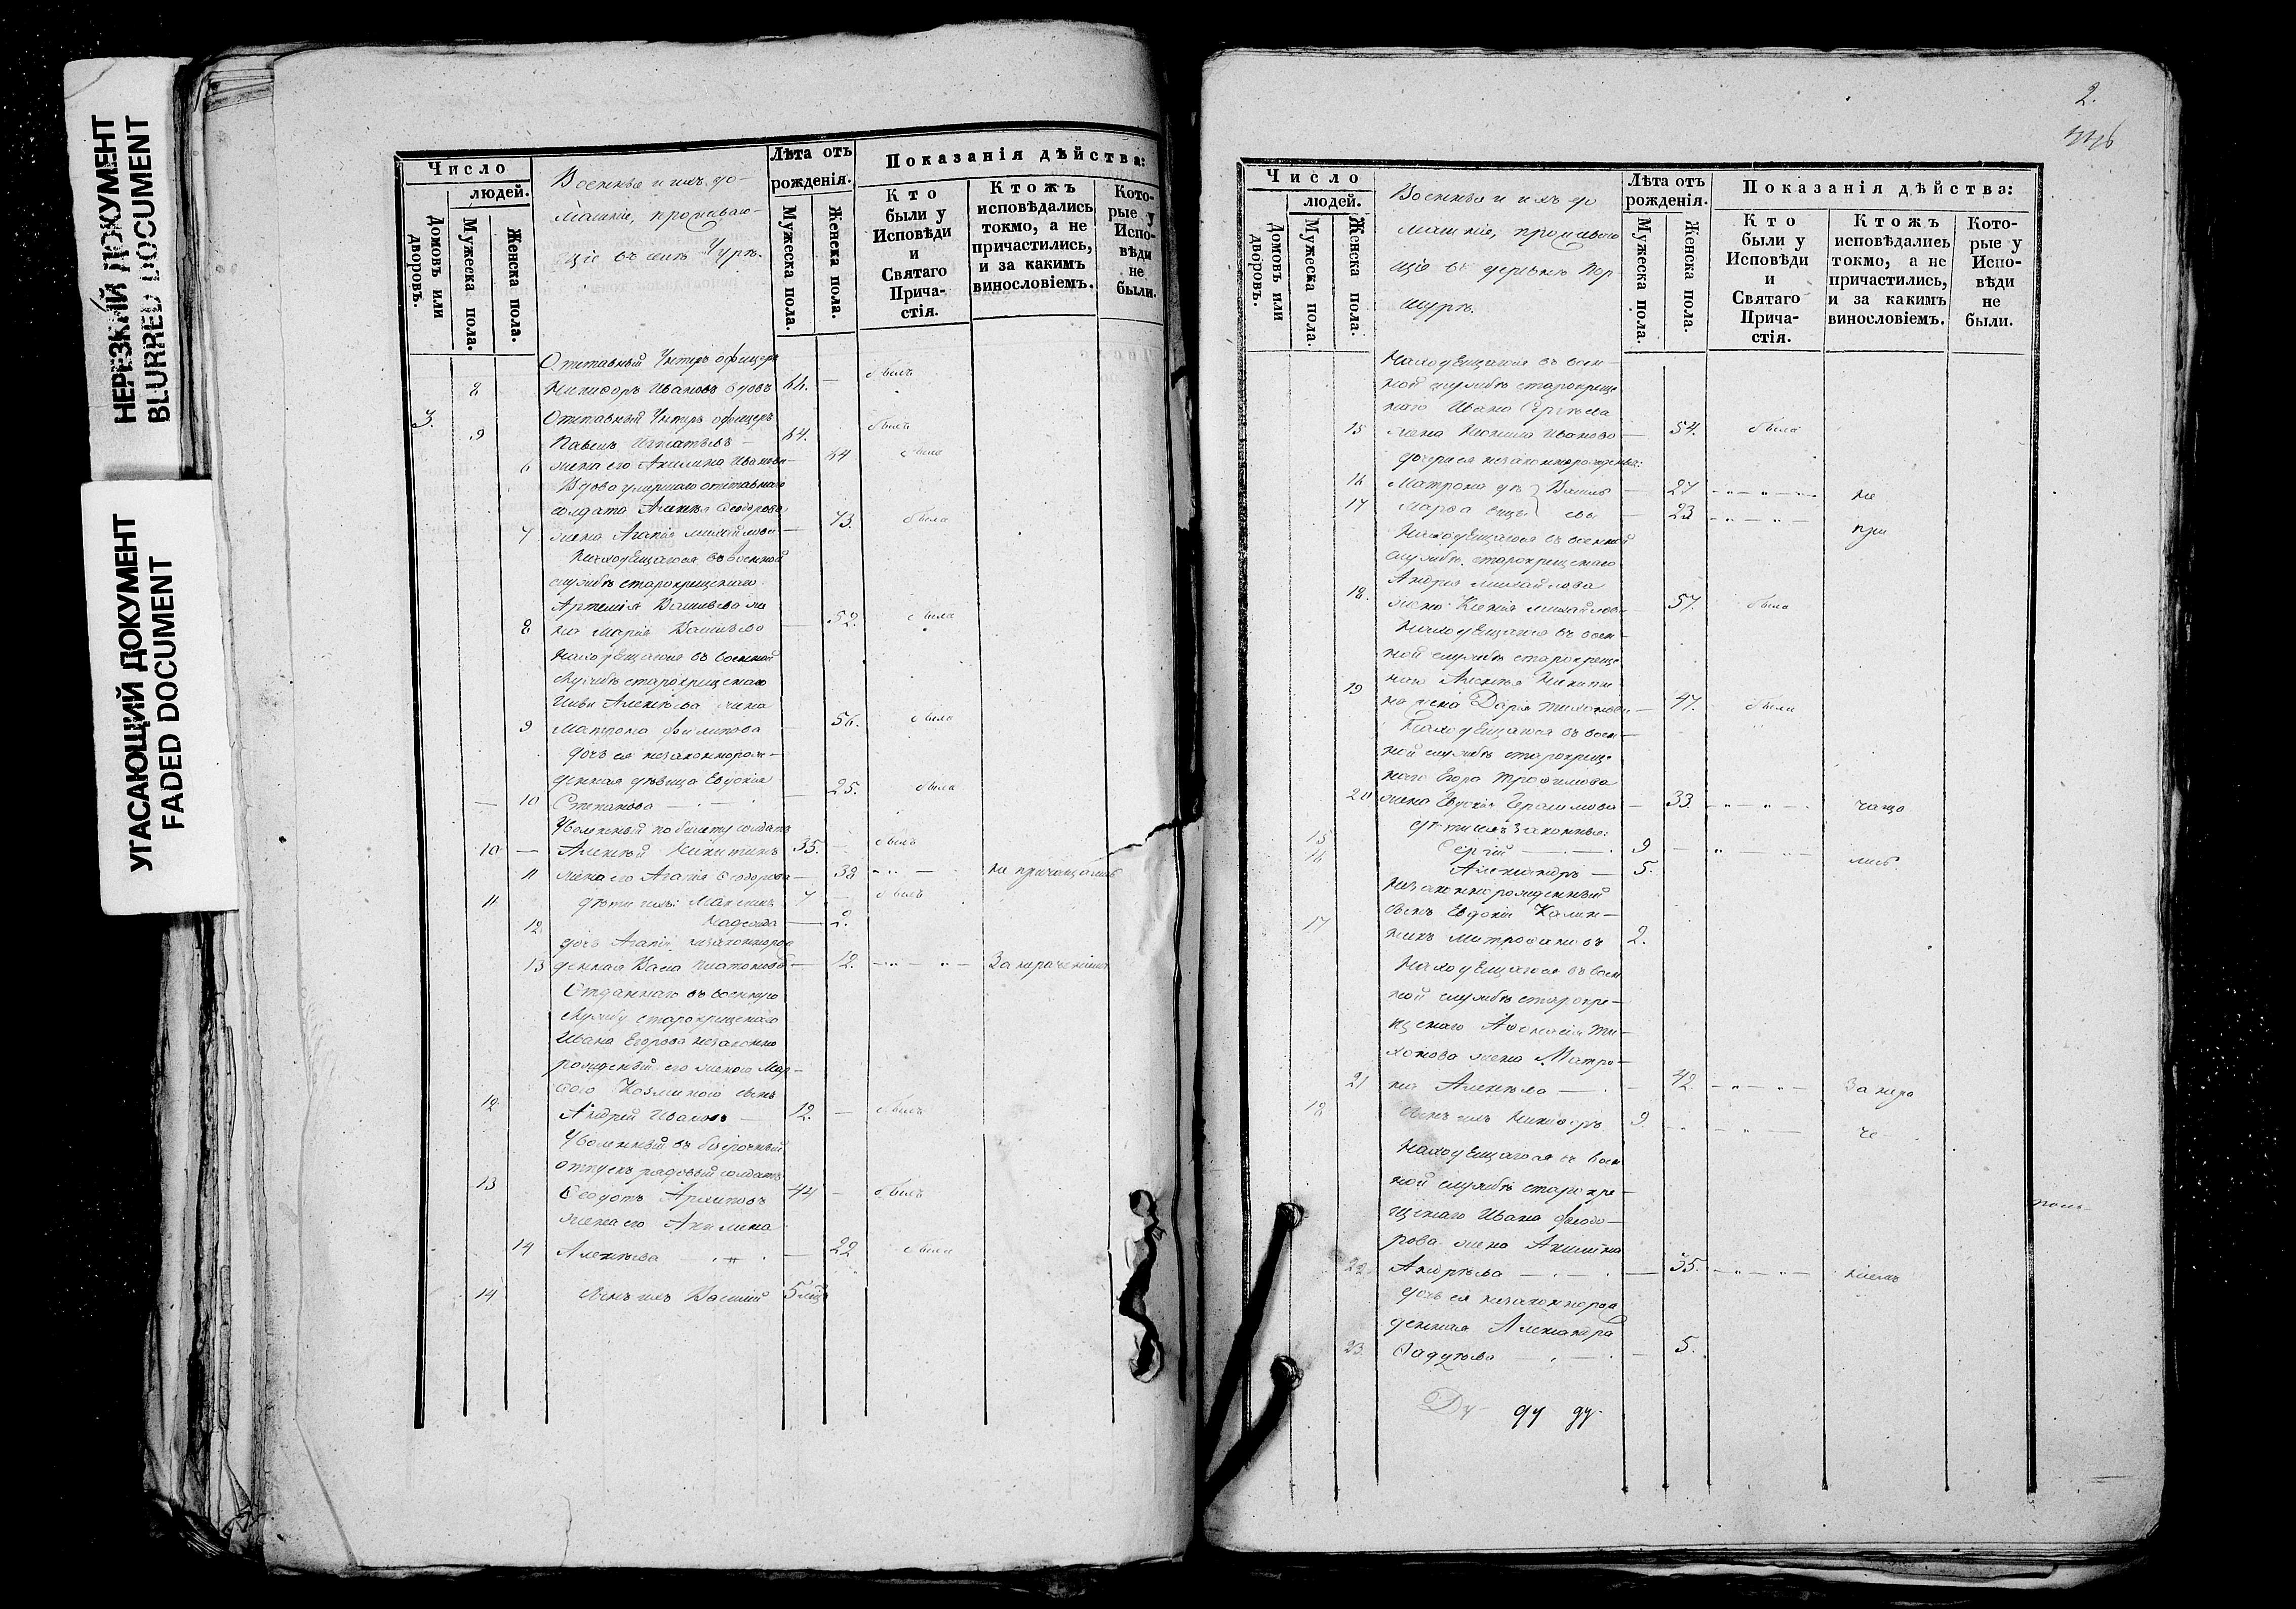 НЕРЕЗКИЙ ДОКУМЕНТ
BLURRED DOCUMENT
УГАСАЮЩИЙ ДОКУМЕНТ
FADED DOCUMENT
Число
людей.
Домовъ или дворовъ.
Мужеска пола.
Женска пола.
Военные и ихъ до-
машніе, проживаю-
щіе въ селѣ Чурѣ.
Лѣта отъ
рожденія.
Мужеска пола.
Женска пола.
Показанія дѣйства:
Кто
были у
Исповѣди
и
Святаго
Прича-
стія.
Ктожъ
исповѣдались
токмо, а не
причастились,
и за какимъ
винословіемъ.
Кото-
рые у
Испо-
вѣди
не
были.
Отставный Унтеръ офицеръ
8 Никифоръ Ивановъ вдовъ 64. — былъ
3. Отставный Унтеръ офицеръ
9 Павелъ Игнатьевъ — 64. былъ
6 жена его Акилина Иванова — 64 была
Вдова умершаго отставнаго
солдата Алексѣя Ѳеодорова
7 жена Агапія Михайлова — 73. была
Находящагося въ военной
службѣ старокрещенаго
Артемія Васильева же
8 на Марія Васильева — 52. была
Находящагося въ военной
службѣ старокрещенаго
Алексѣева жена
9 Матрона Филипова — 56. была
дочь ея незаконнорож-
денная дѣвица Евдокія
10 Степанова — 25. была
Уволенный по билету солдатъ
10 — Алексѣй Никитинъ 35. — былъ
11 жена его Агапія Ѳеодорова — 38 не причащались
11 дѣти ихъ: Максимъ 7 — былъ
12 Надежда — 2.
дочь Агапіи незаконнорож
13 денная Васса Платонова — 12. За нераченіемъ
Отданнаго въ военную
службу старокрещенаго
Ивана Егорова незаконно
рожденный его женою Мар-
ѳою Козминою сынъ
12 Андрей Ивановъ — 12. — былъ
Уволенный въ безсрочный
отпускъ рядовый солдатъ
13 Ѳеодотъ Архиповъ 44 — былъ
жена его Акилина
14 Алексѣева — 22 была
14 сынъ ихъ Василій 5 мѣс
2.
Число
людей.
Домовъ или дворовъ.
Мужеска пола.
Женска пола.
Военные и ихъ до
машніе, проживаю
щіе въ деревнѣ Пор
шурѣ.
Лѣта отъ
рожденія.
Мужеска пола.
Женска пола.
Показанія дѣйства:
Кто
были у
Исповѣди
и
Святаго
Прича-
стія.
Ктожъ
исповѣдались
токмо, а не
причастились,
и за какимъ
винословіемъ.
Кото-
рые у
Испо-
вѣди
не
были.
Находящагося въ воен
ной службѣ старокреще
наго Ивана Сергѣева
15 жена Иванова — 54. была
дочери ея незаконнорожденныя:
16 Матрона дѣ Василь — 27 не
17 Марѳа вицы евы — 23 при
Находящагося въ военной
службѣ старокрещенаго
Андрея Михайлова
18. жена Ксенія Михайлова 57. была
Находящагося въ воен-
ной службѣ старокреще
наго Алексѣя Никити
19 на жена Дарія Тихонова — 47. была
Находящагося въ воен-
ной службѣ старокреще
наго Егора Трофимова
20 жена Евдокія Герасимова — 33 чаща
дѣти ихъ законные:
15 Сергій — 9 —
16 Александръ — 5. лись
Незаконнорожденный
сынъ Евдокіи Калин-
17 никъ Митрофановъ 2.
Находящагося въ воен
ной службѣ старокре-
щенаго Аѳонасія Ти-
хонова жена Матро-
21 на Алексѣева — 42 За нера
18 сынъ ихъ Никифоръ 9 че
Находящагося въ воен
ной службѣ старокре-
щенаго Ивана Ѳеодо-
рова жена Акилина
22 Андреева — 35. ніемъ
дочь ея незаконнорож
денная Александра
23. Ѳадѣева — 5.